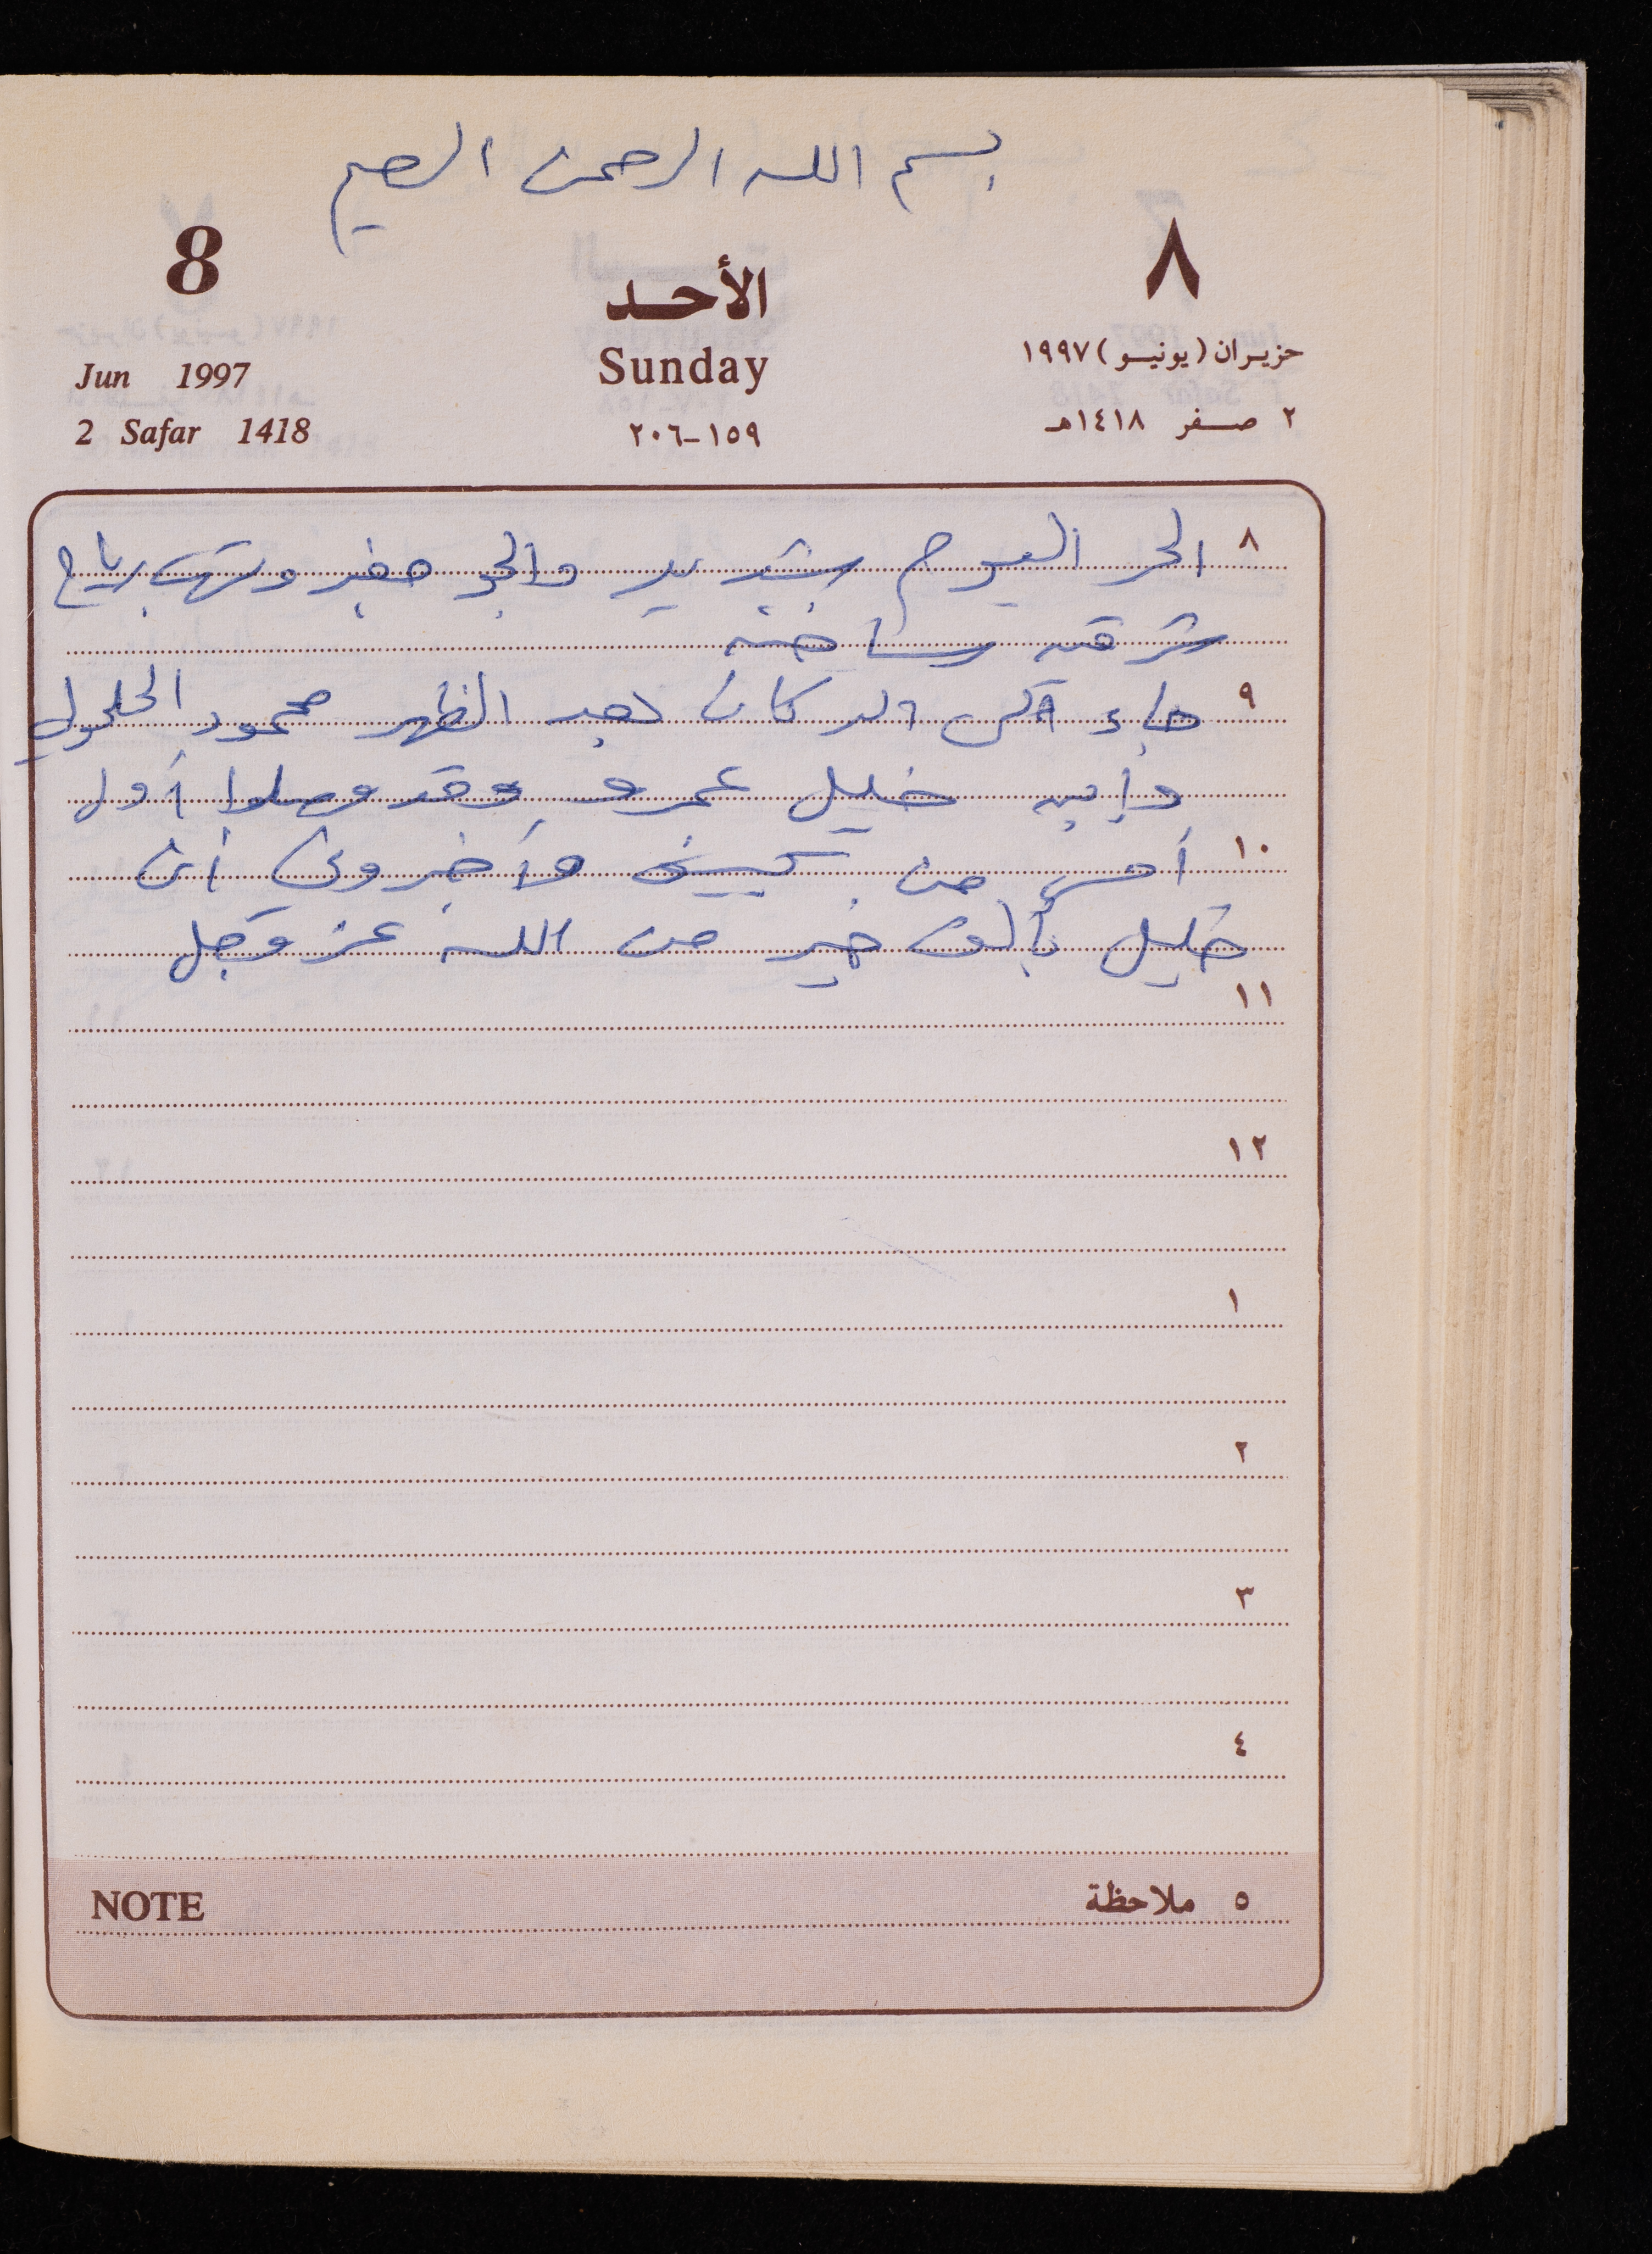 بسم الله الرحمن الرحيم
8 الأحد ٨
Jun 1997 Sunday حزيران (يونيو) ١٩٩٧
2 Safar 1418 ١٥٩-٢٠٦ ٢ صفر ١٤١٨هـ
٨ الحر اليوم شديد والجو مغبر وتهب رياح
شرقية ساخنة
٩ جاء الى الدكان بعد الظهر محمود الحلحولي
وابنه خليل عمرو وقد وصلوا أول
١٠ أمس من وأخبروني أن
خليل بألف خير من الله عز وجل
١١
١٢
١
٢
٣
٤
NOTE ٥ ملاحظة